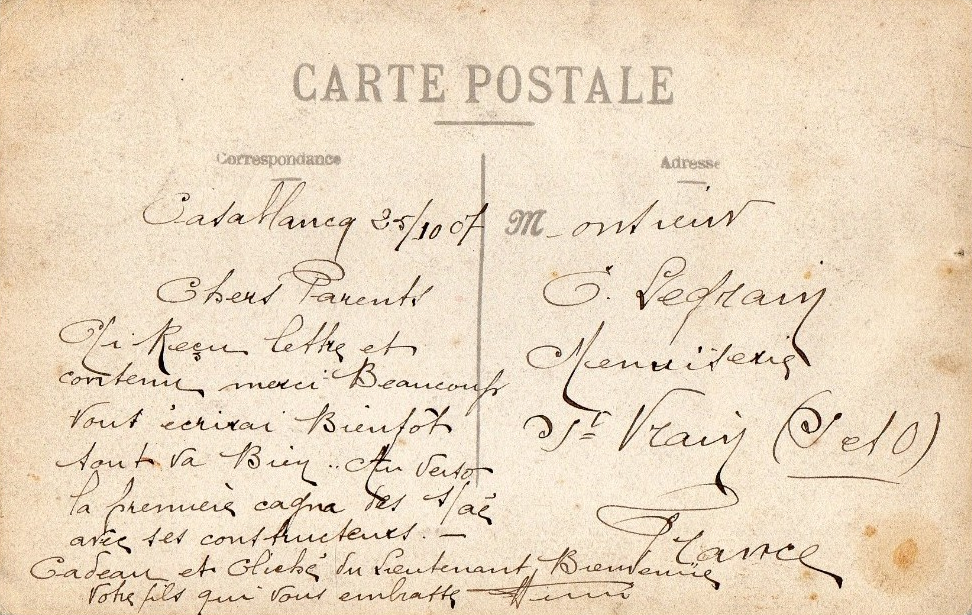 CARTE POSTALE
Correspondance
Adresse
Casablanca 25/10 07
Chers Parents
Ai Reçu lettre et
contenu merci Beaucoup
vous écrirai Bientôt
tout va Bien .. Au verso
la première cagna des
avec ses constructeurs. —
Cadeau et Cliché du Lieutenant Bienvenüe
Votre fils qui vous embrasse Henri
Monsieur
C. Legrain
Menuiserie
à St Vrain (S et O)
France